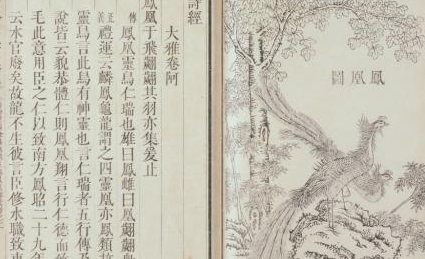 鳳凰圖
詩經
大雅卷阿
鳳凰于飛翽翽其羽亦集爰止
傳 鳳凰靈鳥仁瑞也雄曰鳳雌曰凰翽翽
正義 禮運云麟鳳龜龍謂之四靈凰亦鳳類故
靈鳥言此鳥有神靈也言仁瑞者五行傳及
說皆云貌恭體仁則鳳凰翔言行仁德而致
毛此意用臣之仁以致南方鳳昭二十九年
云水官廢矣故龍不生彼言臣修水職致東